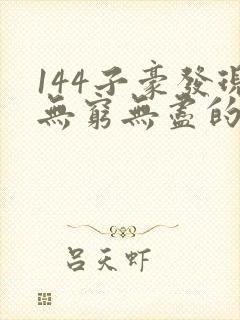 144子豪發現
無窮無盡的
呂天虾